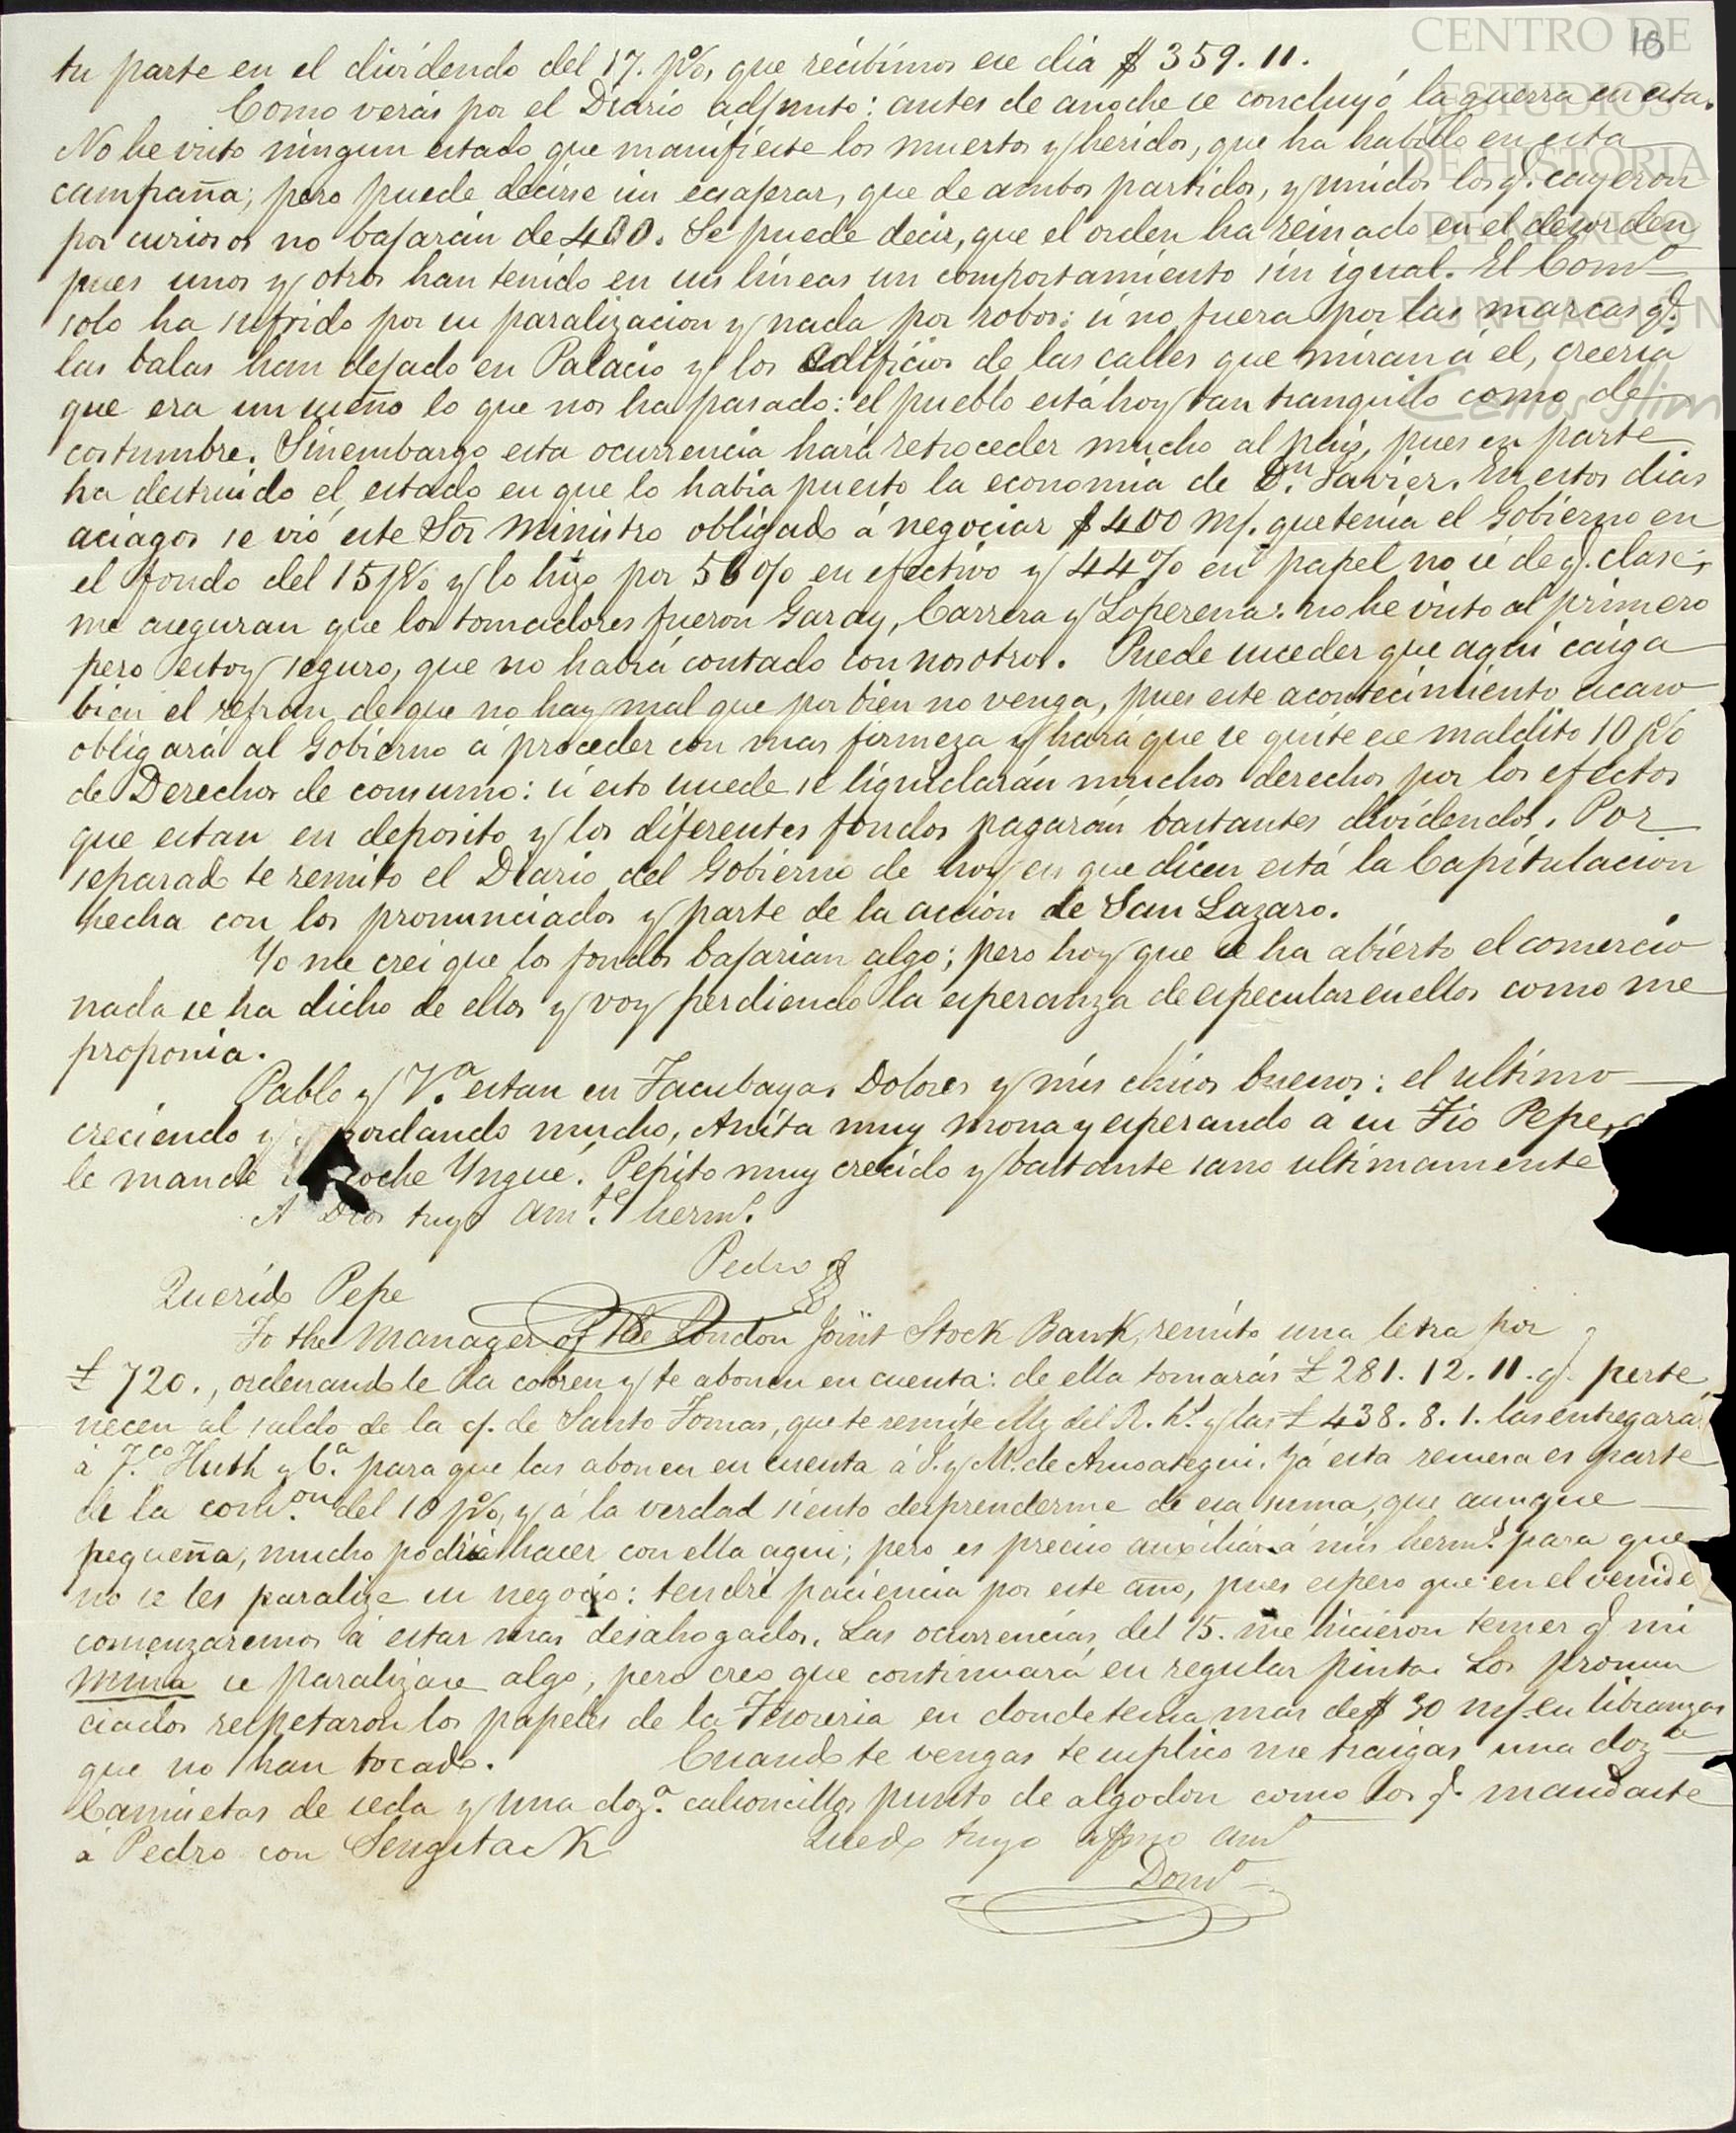 CENTRO DE
ESTUDIOS
DE HISTORIA
DE MÉXICO
FUNDACIÓN
Carlos Slim
16
tu parte en el dividendo del 17. p%, que recibimos ese dia $ 359. 11.
Como verás por el Diario adjunto: antes de anoche se concluyó la guerra en esta.
No he visto ningun estado que manifieste los muertos y heridos, que ha habido en esta
campaña; pero puede decirse sin exajerar, que de ambos partidos, y unidos los q. cayeron
por curiosos no bajarán de 400. Se puede decir, que el orden ha reinado en el desorden
pues unos y otros han tenido en sus líneas un comportamiento sin igual. El Com.o
solo ha sufrido por su paralizacion y nada por robos: si no fuera por las marcas q.
las balas han dejado en Palacio y los edificios de las calles que miran á el, creeria
que era un sueño lo que nos ha pasado: el pueblo está hoy tan tranquilo como de
costumbre. Sinembargo esta ocurrencia hará retroceder mucho al pais, pues en parte
ha destruido el estado en que lo habia puesto la economia de D.n Javier. En estos dias
aciagos se vió este Sor Ministro obligado á negociar $ 400 m/. que tenia el Gobierno en
el fondo del 15 p% y lo hizo por 56 % en efectivo y 44 % en papel no sé de q. clase;
me aseguran que los tomadores fueron Garay, Carrera y Loperena: no he visto al primero
pero estoy seguro, que no habrá contado con nosotros. Puede suceder que aqui caiga
bien el refran de que no hay mal que por bien no venga, pues este acontecimiento acaso
obligará al Gobierno á proceder con mas firmeza y hará que se quite ese maldito 10 p%
de Derechos de consumo: si esto sucede se liquidarán muchos derechos por los efectos
que estan en deposito y los diferentes fondos pagarán bastantes dividendos. Por
separado te remito el Diario del Gobierno de hoy en que dicen está la Capitulacion
hecha con los pronunciados y parte de la accion de San Lazaro.
Yo me crei que los fondos bajarian algo; pero hoy que se ha abierto el comercio
nada se ha dicho de ellos y voy perdiendo la esperanza de especular en ellos como me
proponia.
Pablo y V.a estan en Tacubaya. Dolores y mis chicos buenos: el ultimo
creciendo y gordando mucho, Anita muy mona y esperando á su Tio Pepe,
le mande coche Yngue. Pepito muy crecido y bastante sano ultimamente
A Dios tuyo am.te herm.o
Pedro
Querido Pepe
To the Manager of the London Joint Stock Bank, remito una letra por
£ 720., ordenandole la cobren y te abonen en cuenta: de ella tomarás £ 281. 12. 11. q. perte
necen al saldo de la c/. de Santo Tomas, que te remite Mz del R. h.s y las £ 438. 8. 1. las entregará
á F.co Huth y C.a para que las abonen en cuenta á J. y M. de Ansoategui. Yá esta remesa es parte
de la com.on del 10 p%, y á la verdad siento desprenderme de esa suma, que aunque
pequeña, mucho podria hacer con ella aqui; pero es preciso auxiliar á mis herm.s para que
no se les paralize su negocio: tendré paciencia por este año, pues espero que en el venide
comenzaremos á estar mas desahogados. Las ocurrencias del 15. me hicieron temer q. mi
mina se paralizase algo, pero creo que continuará en regular pinta. Los pronun
ciados respetaron los papeles de la Tesoreria en donde tenia mas de $ 30 m/. en libranzas
que no han tocado. Cuando te vengas te suplico me traigas una doz.a
Camisetas de seda y una doz.a calsoncillos punto de algodon como los q. mandaste
á Pedro con Sengstack Quedo tuyo affmo am.o
Dom.o